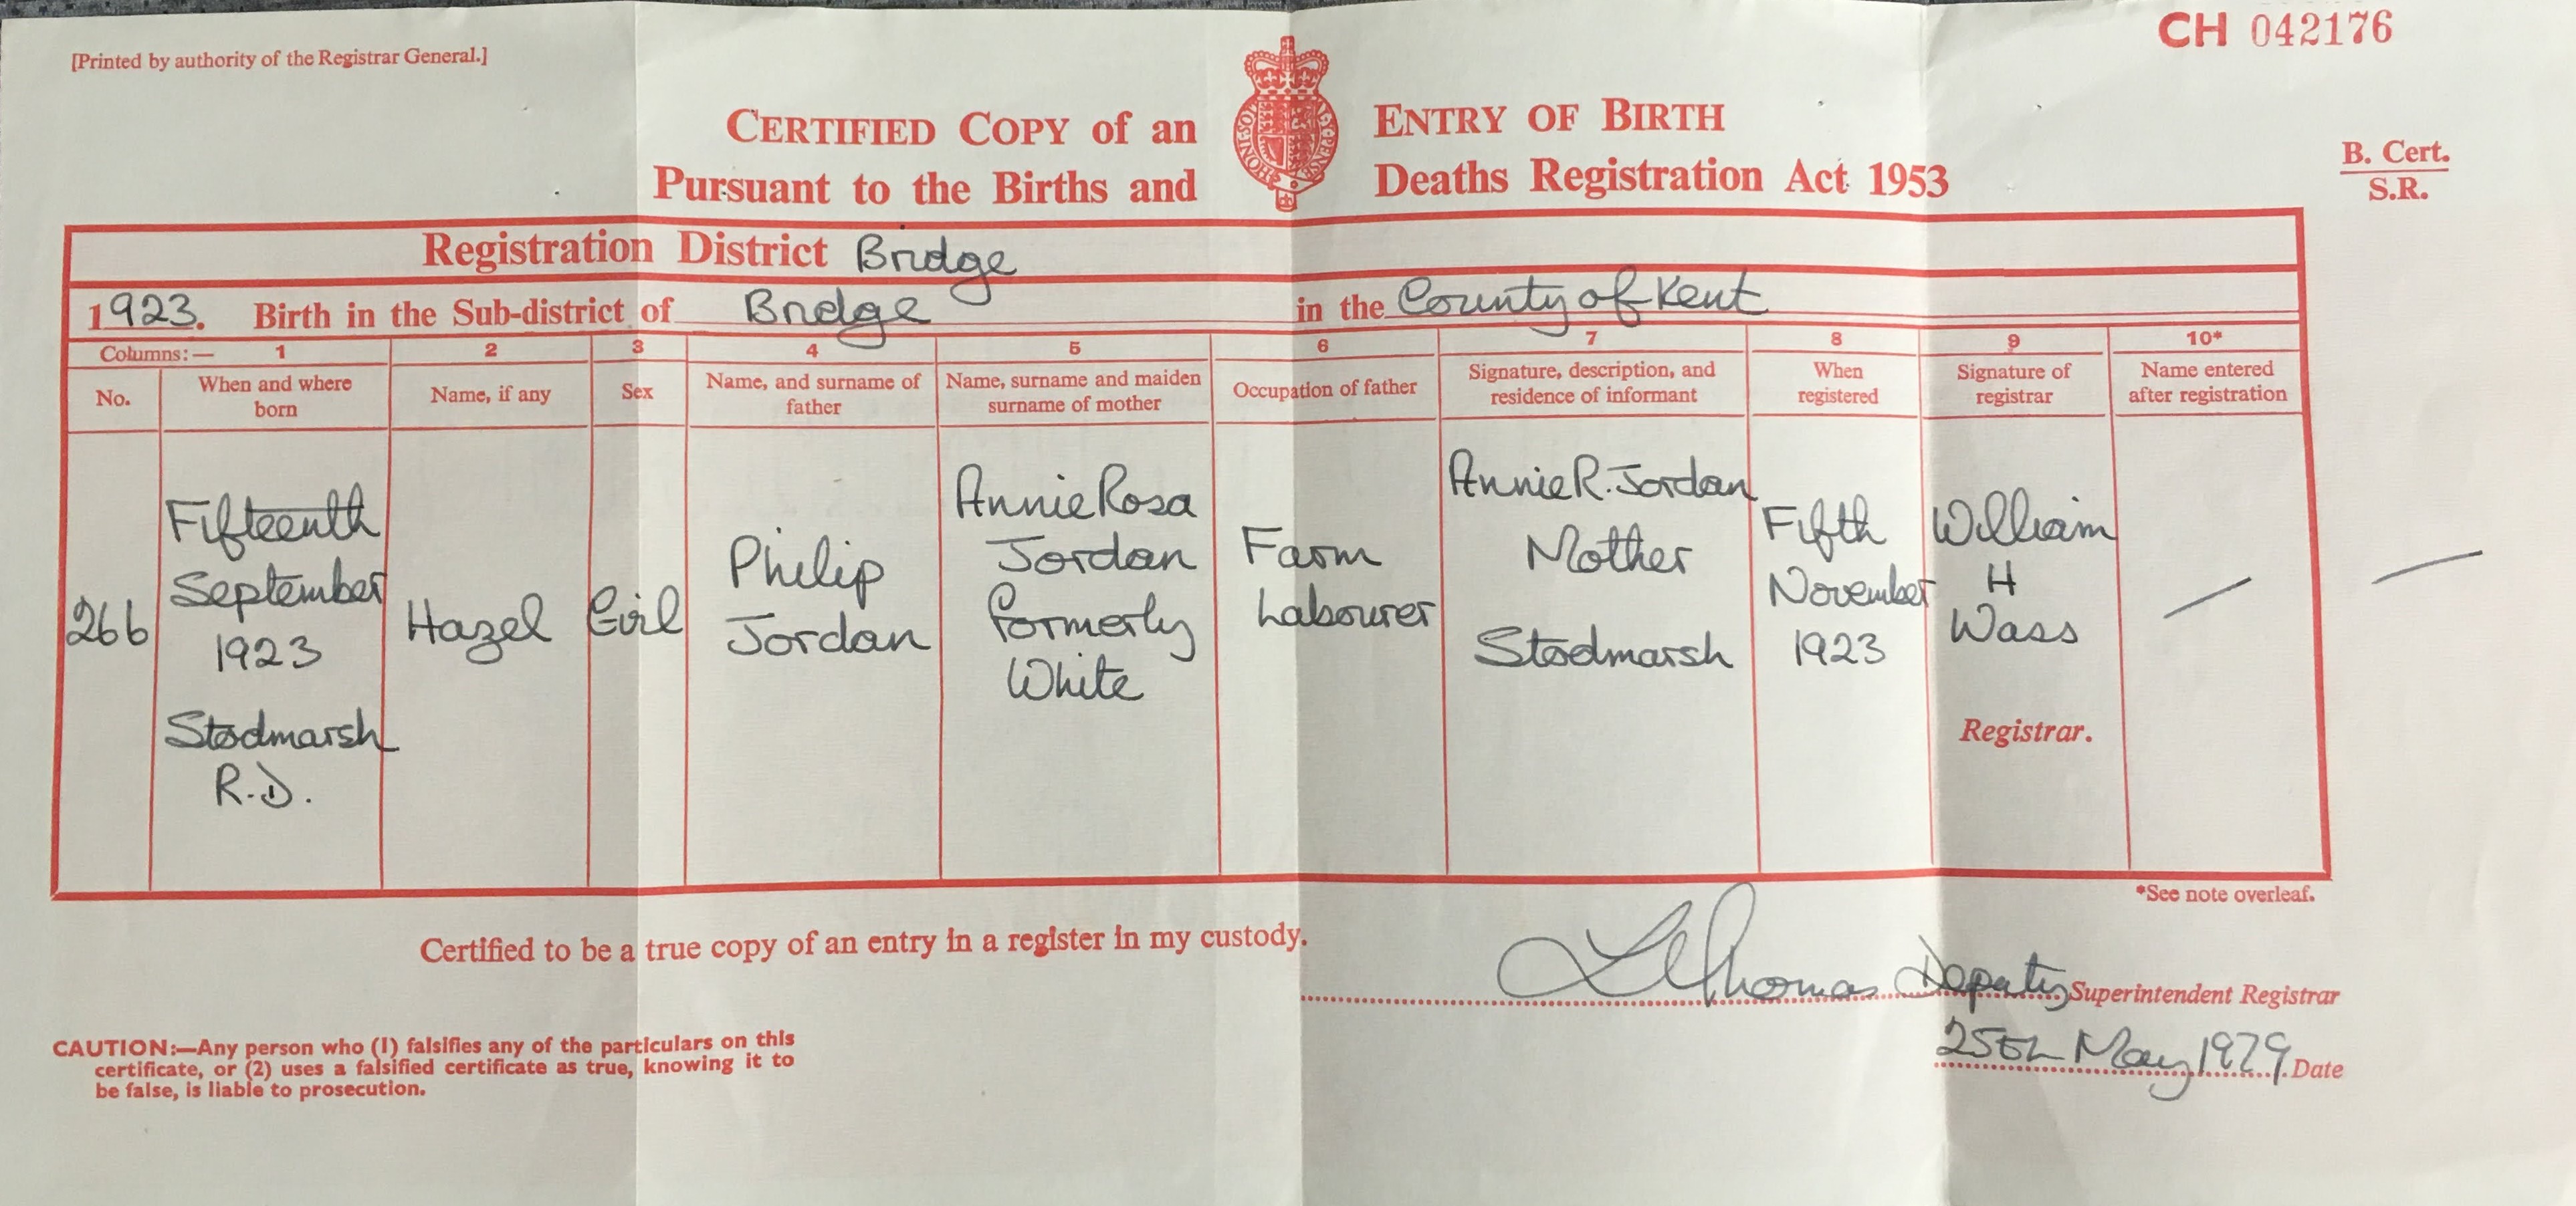 [Printed by authority of the Registrar General.]
CH 042176
CERTIFIED COPY of an ENTRY OF BIRTH
Pursuant to the Births and Deaths Registration Act 1953
B. Cert.
S.R.
Registration District Bridge
1923. Birth in the Sub-district of Bridge in the County of Kent
Columns:— 1 2 3 4 5 6 7 8 9 10*
No.
When and where
born
Name, if any
Sex
Name, and surname of
father
Name, surname and maiden
surname of mother
Occupation of father
Signature, description, and
residence of informant
When
registered
Signature of
registrar
Name entered
after registration
266
Fifteenth
September
1923
Stodmarsh
R.D.
Hazel
Girl
Philip
Jordan
Annie Rosa
Jordan
formerly
White
Farm
Labourer
Annie R. Jordan
Mother
Stodmarsh
Fifth
November
1923
William
H
Wass
Registrar.
*See note overleaf.
Certified to be a true copy of an entry in a register in my custody.
Thomas Deputy Superintendent Registrar
25th May 1979 Date
CAUTION:—Any person who (1) falsifies any of the particulars on this
certificate, or (2) uses a falsified certificate as true, knowing it to
be false, is liable to prosecution.